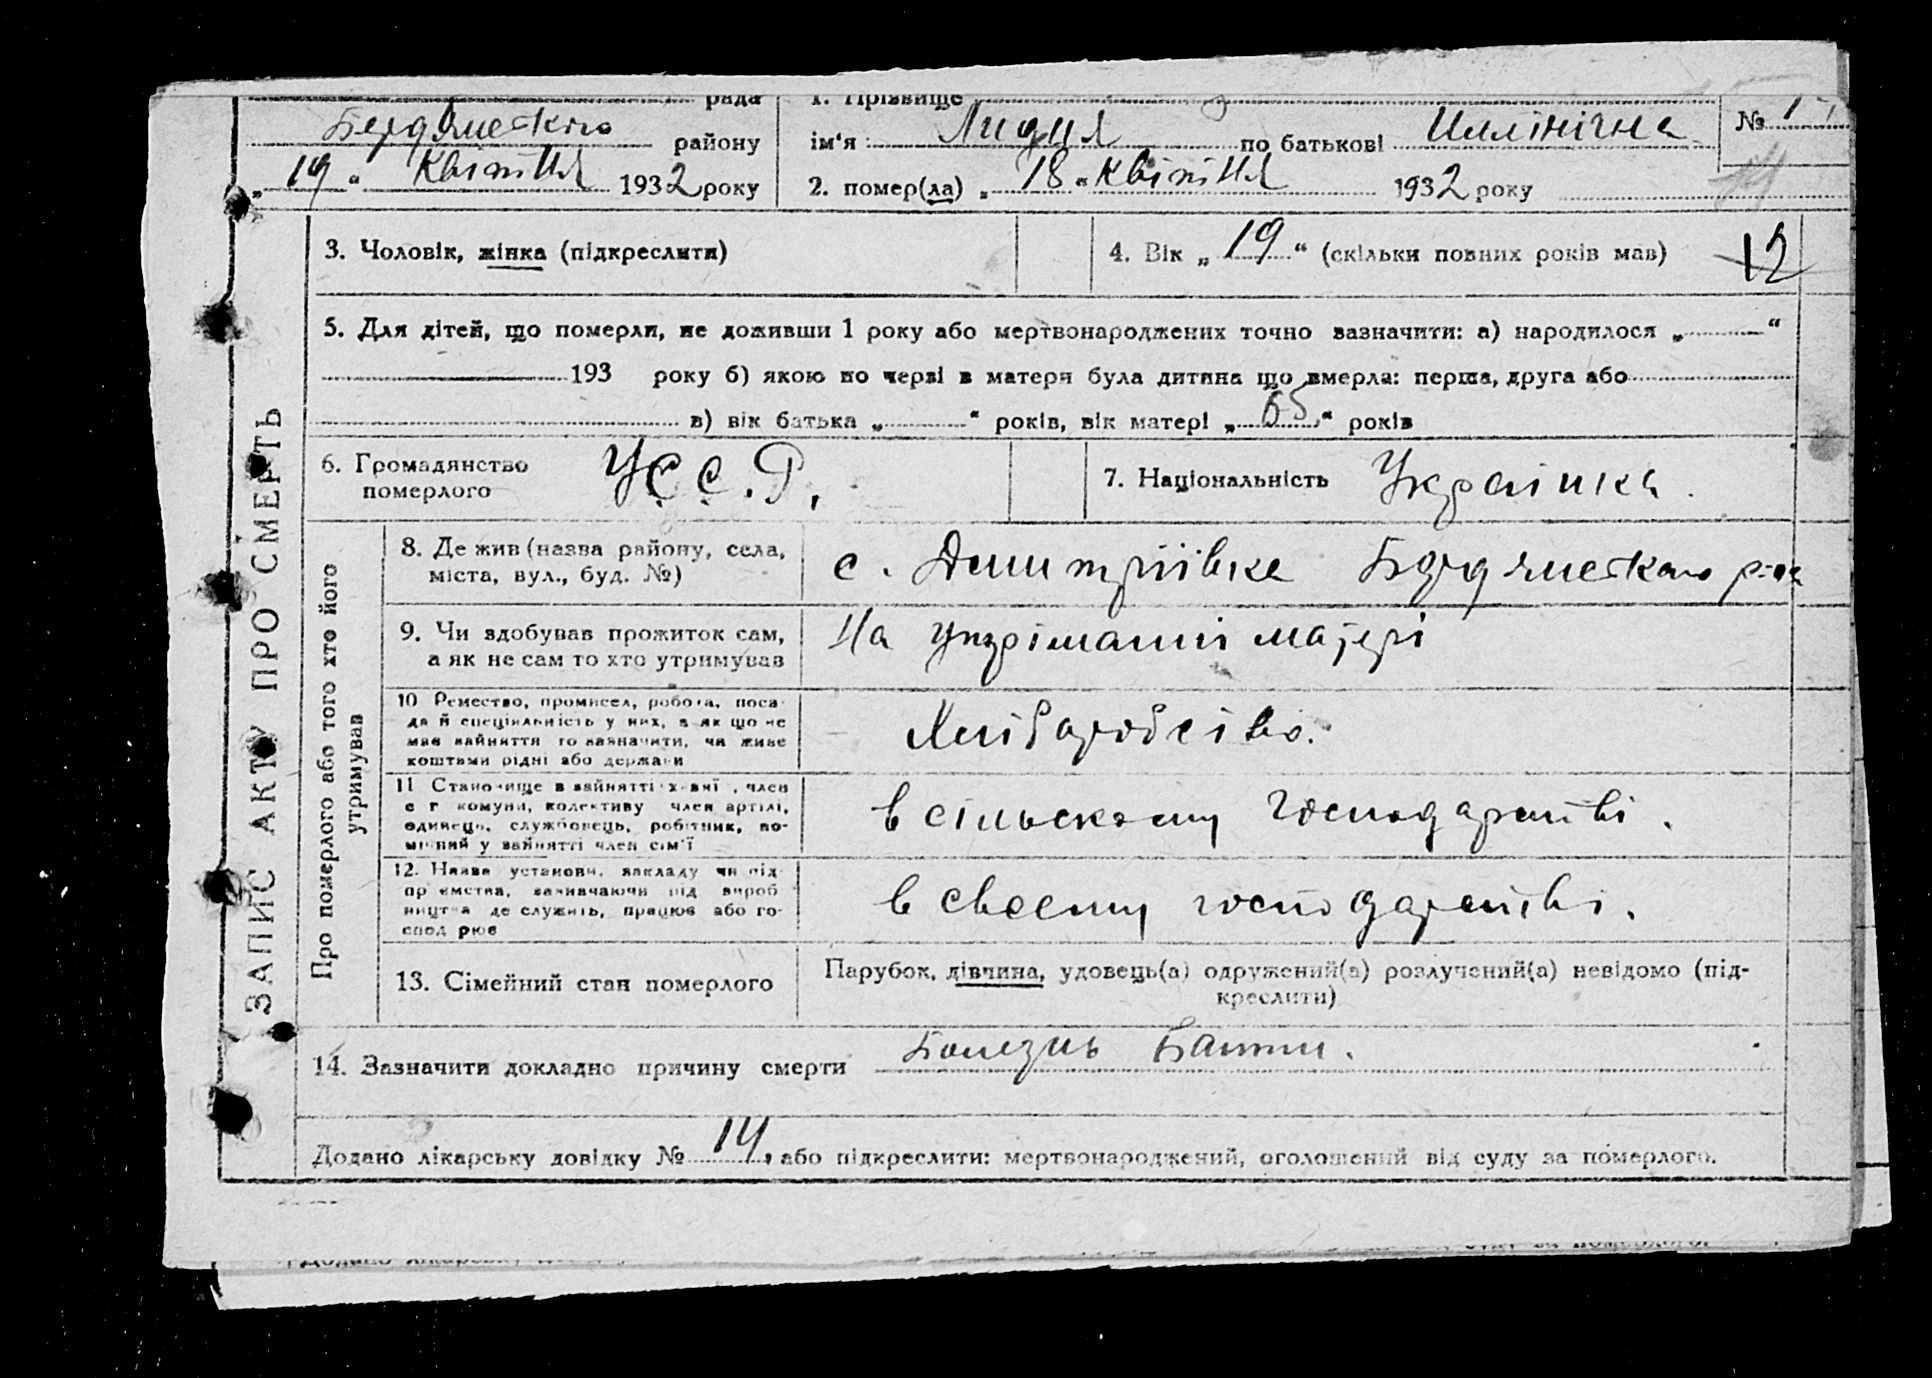 рада
1. Прізвище
Бердянського району
ім'я Лидия по батькові Иллінічна
№
„19“ квітня 1932 року
2. помер(ла) „18“ квітня 1932 року
3. Чоловік, жінка (підкреслити)
4. Вік „19“ (скільки повних років мав)
12
5. Для дітей, що померли, не доживши 1 року або мертвонароджених точно зазначити: а) народилося „ “
193 року б) якою по черзі в матери була дитина що вмерла: перша, друга або
в) вік батька „ “ років, вік матері „65“ років
6. Громадянство
померлого
У.С.С.Р.
7. Національність Українка.
ЗАПИС АКТУ ПРО СМЕРТЬ
Про померлого або того хто його
утримував
8. Де жив (назва району, села,
міста, вул., буд. №)
с. Дмитріївка Бердянського р-на
9. Чи здобував прожиток сам,
а як не сам то хто утримував
На утріманні матері
10 Ремество, промисел, робота, поса-
да й спеціяльність у них, а як що не
мав зайняття то зазначити, чи живе
коштами рідні або держави
Хліборобство.
11 Становище в зайнятті член
с г комуни, колективу член артілі,
одинець, службовець, робітник, по-
мічний у зайнятті член сім'ї
в сільскому господарстві.
12. Назва установи, закладу чи під-
приємства, зазначаючи рід вироб-
ництва де служить, працює або го-
сподарює
в своєму господарстві.
13. Сімейний стан померлого
Парубок, дівчина, удовець(а) одружений(а) розлучений(а) невідомо (під-
креслити)
14. Зазначити докладно причину смерти Болезнь
Додано лікарську довідку № 14, або підкреслити: мертвонароджений, оголошений від суду за померлого.